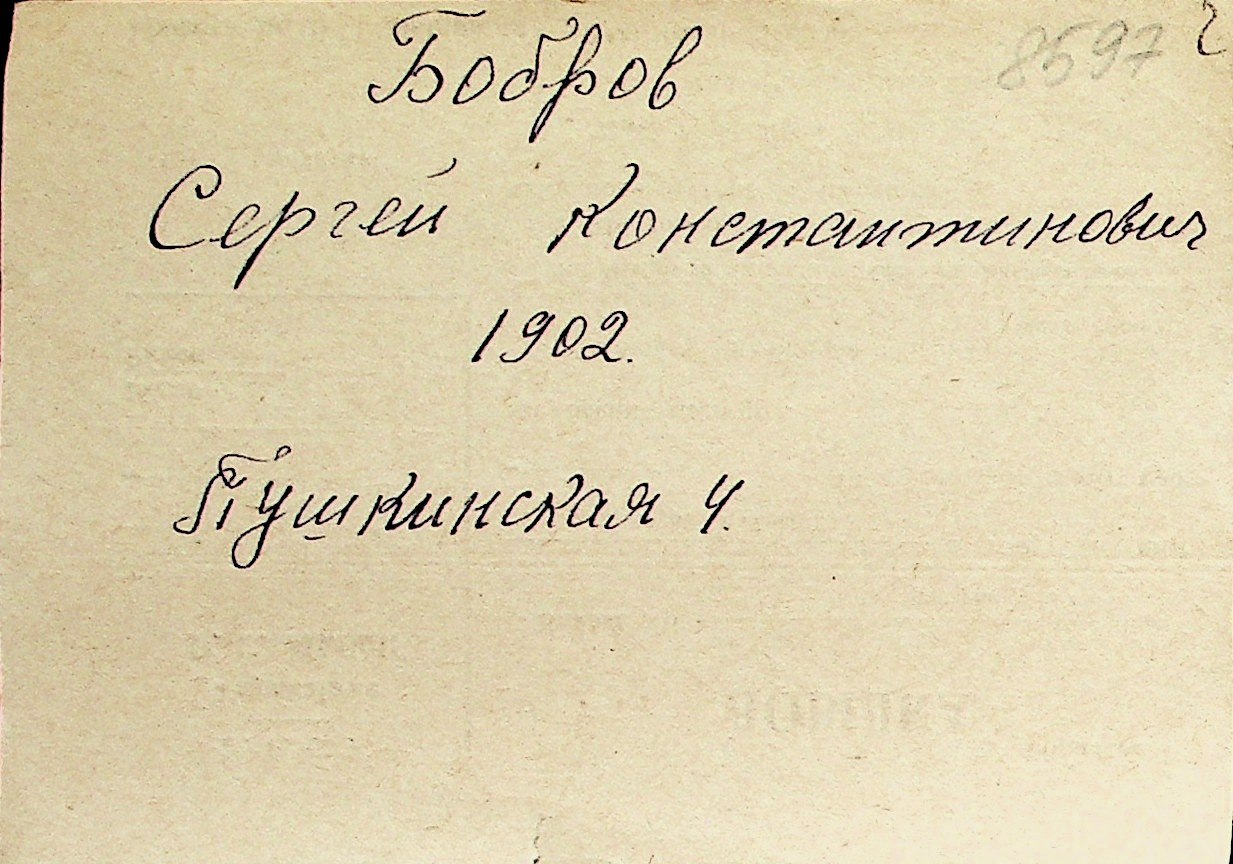 8597
Бобров
Сергей Константинович
1902.
Пушкинская 4.